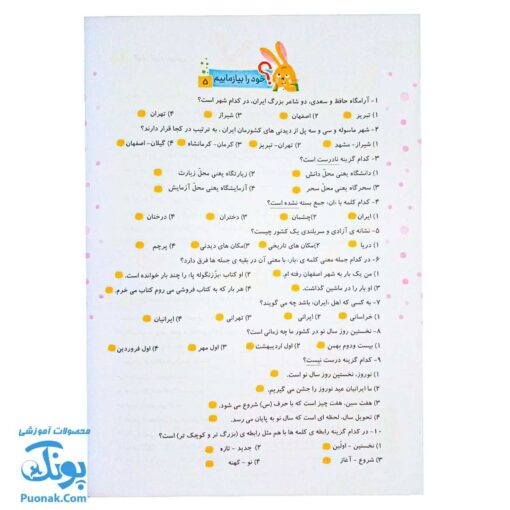 خود را بیازماییم
۵
۱- آرامگاه حافظ و سعدی، دو شاعر بزرگ ایران، در کدام شهر است؟
۱) تبریز ۲) اصفهان ۳) شیراز ۴) تهران
۲- شهر ماسوله و سی و سه پل از دیدنی های کشورمان ایران ، به ترتیب در کجا قرار دارند؟
۱) شیراز- مشهد ۲) تهران- تبریز ۳) کرمان- کرمانشاه ۴) گیلان- اصفهان
۳- کدام گزینه نادرست است؟
۱) دانشگاه یعنی محلّ دانش ۲) زیارتگاه یعنی محلّ زیارت
۳) سحرگاه یعنی محل سحر ۴) آزمایشگاه یعنی محل آزمایش
۴- کدام کلمه با ،ان، جمع بسته نشده است؟
۱) ایران ۲) چشمان ۳) دختران ۴) درختان
۵- نشانه ی آزادی و سربلندی یک کشور چیست؟
۱) دریا ۲) مکان های تاریخی ۳) مکان های دیدنی ۴) پرچم
۶- در کدام جمله معنی کلمه ی ،بار، با معنی آن در بقیه ی جمله ها فرق دارد؟
۱) من یک بار به شهر اصفهان رفته ام. ۲) او کتاب ،بززنگوله پا، را چند بار خوانده است.
۳) او بار را در ماشین گذاشت. ۴) هر بار که به کتاب فروشی می روم کتاب می خرم.
۷- به کسی که اهل ،ایران، باشد چه می گویند؟
۱) خراسانی ۲) ایرانی ۳) تهرانی ۴) ایرانیان
۸- نخستین روز سال نو در کشور ما چه زمانی است؟
۱) بیست ودوم بهمن ۲) اول اردیبهشت ۳) اول مهر ۴) اول فروردین
۹- کدام گزینه درست نیست؟
۱) نوروز، نخستین روز سال نو است.
۲) ما ایرانیان عید نوروز را جشن می گیریم.
۳) هفت سین، هفت چیز است که با حرف (س) شروع می شود.
۴) تحویل سال، لحظه ای است که سال نو به پایان می رسد.
۱۰- در کدام گزینه رابطه ی کلمه ها با هم مثل رابطه ی (بزرگ تر و کوچک تر) است؟
۱) نخستین - اوّلین ۲) جدید - تازه
۳) شروع - آغاز ۴) نو - کهنه
محصولات آموزشی
پونک
Puonak.Com